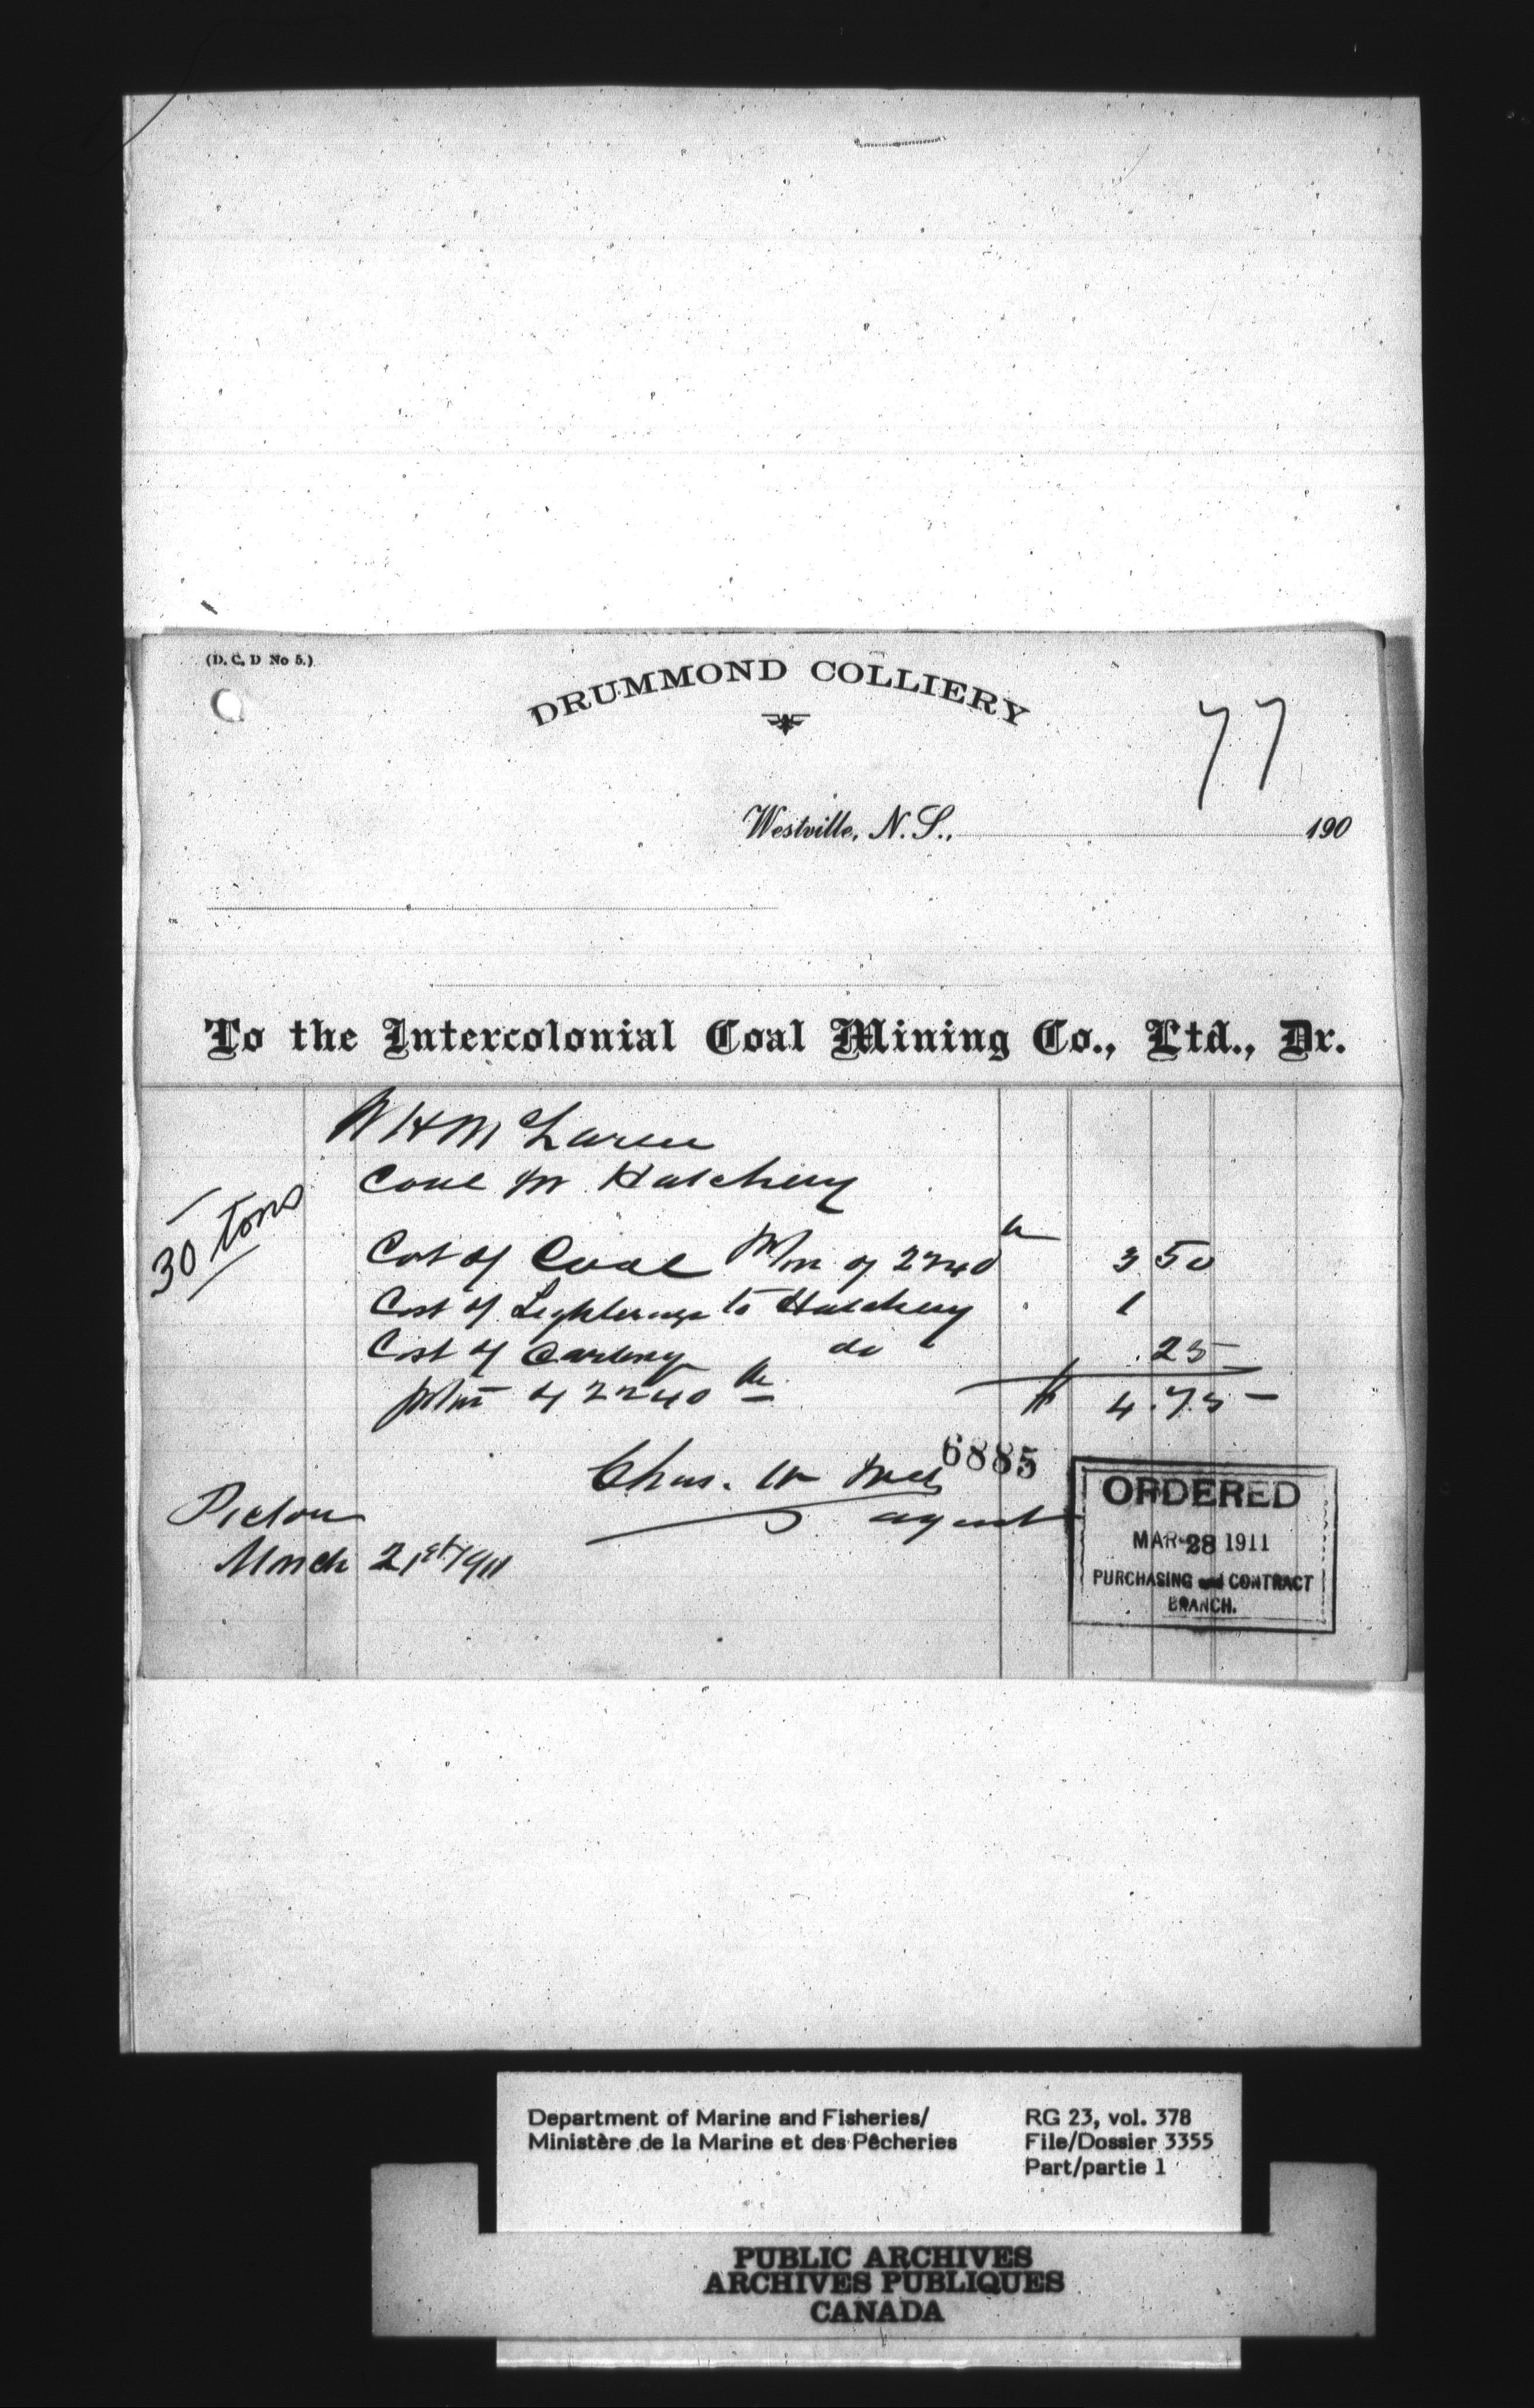 (D. C. D No 5.)
DRUMMOND COLLIERY
77
Westville, N. S., 190
To the Intercolonial Coal Mining Co., Ltd., Dr.
W H McLaren
Coal for Hatchery
30 tons
Cost of Coal of 2240 lbs 3 50
Cost of Lighterage to Hatchery 1
Cost of Carting do .25
of 2240 lbs $ 4.75
6885
Chas. W
agent
Pictou
March 21st 1911
ORDERED
MAR 28 1911
PURCHASING and CONTRACT
BRANCH.
Department of Marine and Fisheries/
Ministère de la Marine et des Pêcheries
RG 23, vol. 378
File/Dossier 3355
Part/partie 1
PUBLIC ARCHIVES
ARCHIVES PUBLIQUES
CANADA